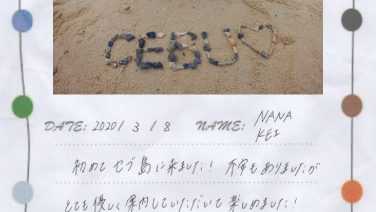 CEBU♡
DATE: 2020 / 3 / 8 NAME: NANA
KEI
初めてセブ島に来ました！不安もありましたが
とても優しく案内していただいて楽しめました！